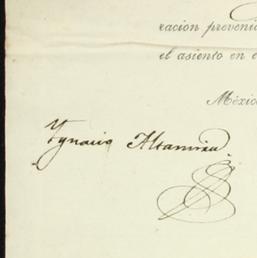 racion preveni
el asiento en e
Méxic
Ygnacio Altamira